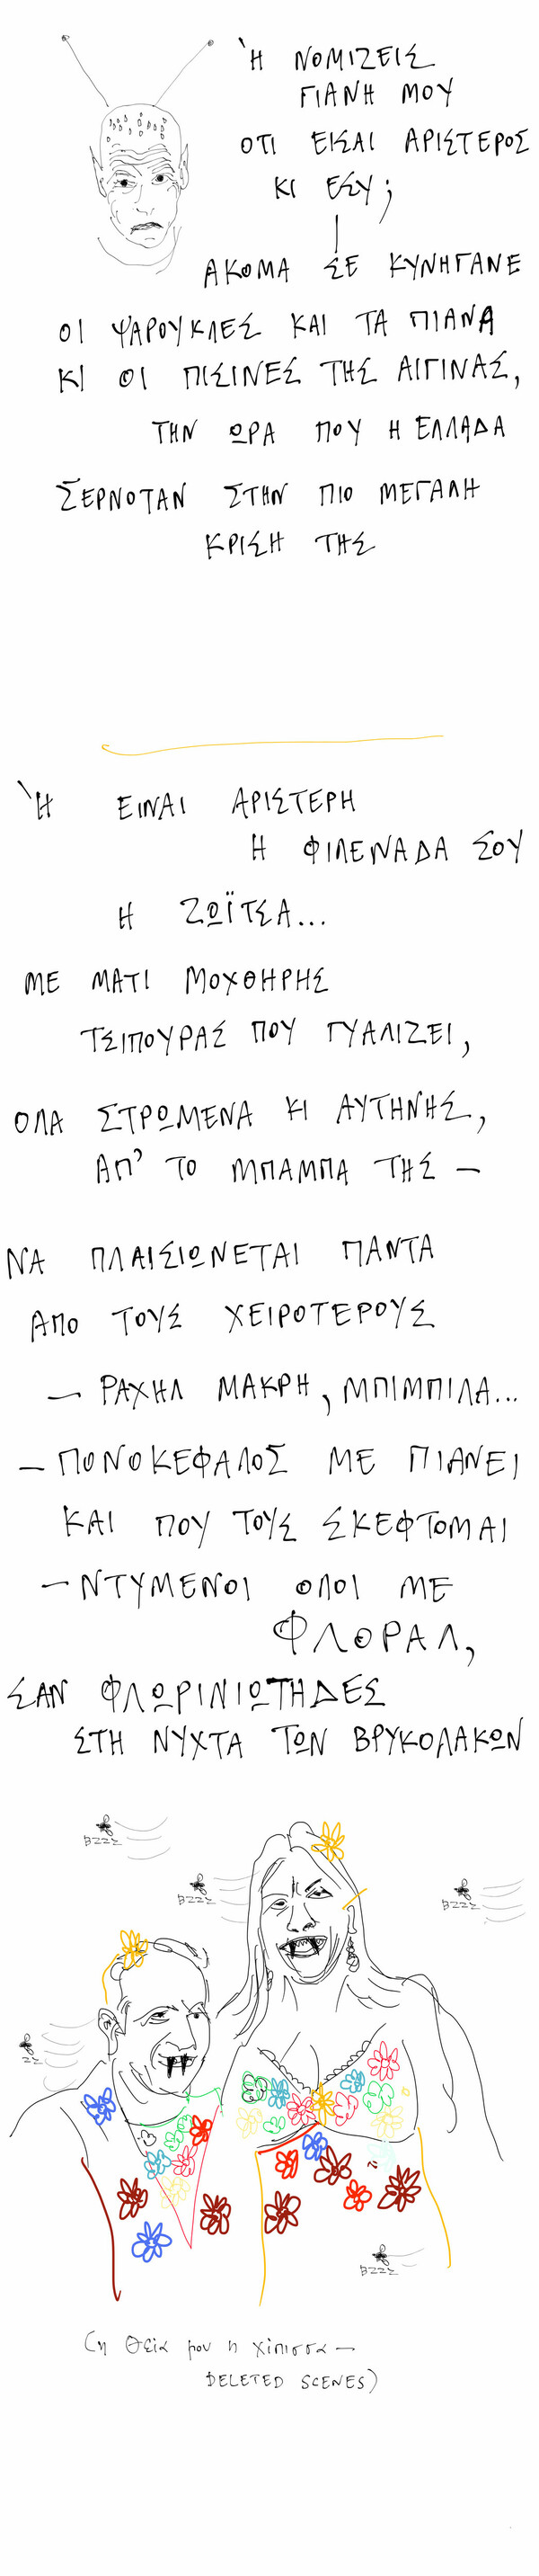 Ή ΝΟΜΙΖΕΙΣ
ΓΙΑΝΗ ΜΟΥ
ΟΤΙ ΕΙΣΑΙ ΑΡΙΣΤΕΡΟΣ
ΚΙ ΕΣΥ;
ΑΚΟΜΑ ΣΕ ΚΥΝΗΓΑΝΕ
ΟΙ ΨΑΡΟΥΚΛΕΣ ΚΑΙ ΤΑ ΠΙΑΝΑ
ΚΙ ΟΙ ΠΙΣΙΝΕΣ ΤΗΣ ΑΙΓΙΝΑΣ,
ΤΗΝ ΩΡΑ ΠΟΥ Η ΕΛΛΑΔΑ
ΣΕΡΝΟΤΑΝ ΣΤΗΝ ΠΙΟ ΜΕΓΑΛΗ
ΚΡΙΣΗ ΤΗΣ
Ή ΕΙΝΑΙ ΑΡΙΣΤΕΡΗ
Η ΦΙΛΕΝΑΔΑ ΣΟΥ
Η ΖΩΪΤΣΑ...
ΜΕ ΜΑΤΙ ΜΟΧΘΗΡΗΣ
ΤΣΙΠΟΥΡΑΣ ΠΟΥ ΓΥΑΛΙΖΕΙ,
ΟΛΑ ΣΤΡΩΜΕΝΑ ΚΙ ΑΥΤΗΝΗΣ,
ΑΠ' ΤΟ ΜΠΑΜΠΑ ΤΗΣ –
ΝΑ ΠΛΑΙΣΙΩΝΕΤΑΙ ΠΑΝΤΑ
ΑΠΟ ΤΟΥΣ ΧΕΙΡΟΤΕΡΟΥΣ
– ΡΑΧΗΛ ΜΑΚΡΗ, ΜΠΙΜΠΙΛΑ...
– ΠΟΝΟΚΕΦΑΛΟΣ ΜΕ ΠΙΑΝΕΙ
ΚΑΙ ΠΟΥ ΤΟΥΣ ΣΚΕΦΤΟΜΑΙ
– ΝΤΥΜΕΝΟΙ ΟΛΟΙ ΜΕ
ΦΛΟΡΑΛ,
ΣΑΝ ΦΛΩΡΙΝΙΩΤΗΔΕΣ
ΣΤΗ ΝΥΧΤΑ ΤΩΝ ΒΡΥΚΟΛΑΚΩΝ
BZZZ
BZZZ
BZZZ
ZZ
BZZZ
(η θεία μου η χίπισσα –
DELETED SCENES)